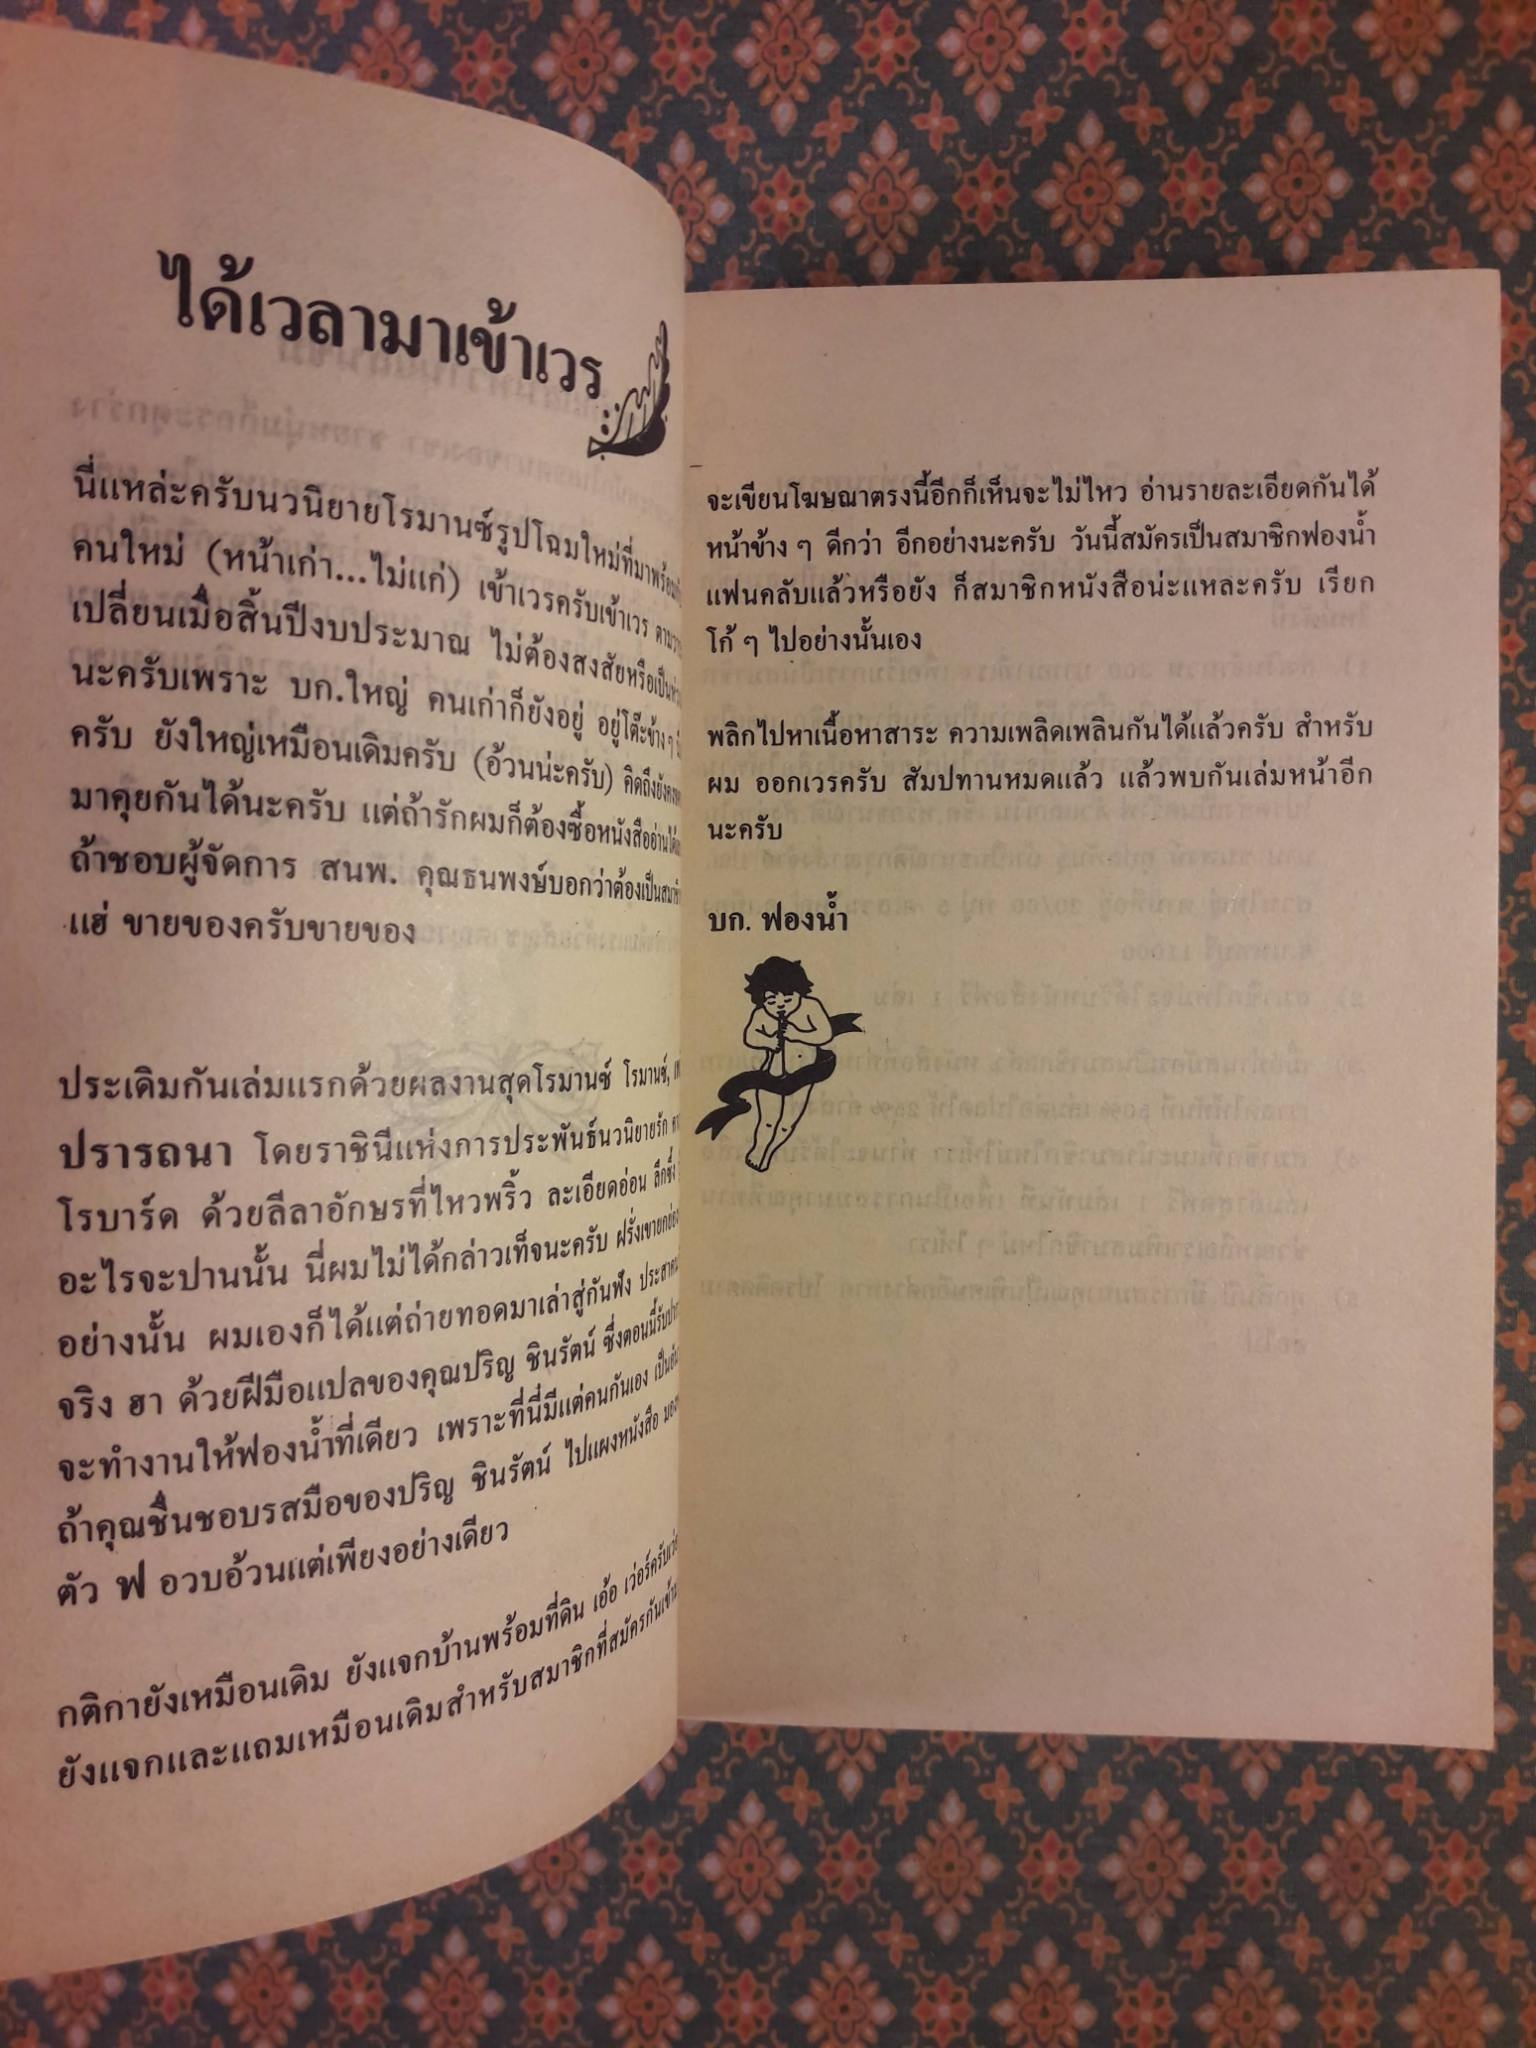 ได้เวลามาเข้าเวร
นี่แหล่ะครับนวนิยายโรมานซ์รูปโฉมใหม่ที่มาพร้อม
คนใหม่ (หน้าเก่า...ไม่แก่) เข้าเวรครับเข้าเวร
เปลี่ยนเมื่อสิ้นปีงบประมาณ ไม่ต้องสงสัยหรือเป็น
นะครับเพราะ บก.ใหญ่ คนเก่าก็ยังอยู่ อยู่โต๊ะข้าง ๆ
ครับ ยังใหญ่เหมือนเดิมครับ (อ้วนน่ะครับ) คิดถึง
มาคุยกันได้นะครับ แต่ถ้ารักผมก็ต้องซื้อหนังสืออ่าน
ถ้าชอบผู้จัดการ สนพ. คุณธนพงษ์บอกว่าต้องเป็น
แฮ่ ขายของครับขายของ
ประเดิมกันเล่มแรกด้วยผลงานสุดโรมานซ์ โรมานซ์,
ปรารถนา โดยราชินีแห่งการประพันธ์นวนิยายรัก
โรบาร์ด ด้วยลีลาอักษรที่ไหวพริ้ว ละเอียดอ่อน ลึกซึ้ง
อะไรจะปานนั้น นี่ผมไม่ได้กล่าวเท็จนะครับ ฝรั่งเขายกย่อง
อย่างนั้น ผมเองก็ได้แต่ถ่ายทอดมาเล่าสู่กันฟัง
จริง ฮา ด้วยฝีมือแปลของคุณปริญ ชินรัตน์ ซึ่งตอนนี้
จะทำงานให้ฟองน้ำที่เดียว เพราะที่นี่มีแต่คนกันเอง
ถ้าคุณชื่นชอบรสมือของปริญ ชินรัตน์ ไปแผงหนังสือ
ตัว ฟ อวบอ้วนแต่เพียงอย่างเดียว
กติกายังเหมือนเดิม ยังแจกบ้านพร้อมที่ดิน เอ้อ เว่อร์ครับ
ยังแจกและแถมเหมือนเดิมสำหรับสมาชิกที่สมัครกัน
จะเขียนโฆษณาตรงนี้อีกก็เห็นจะไม่ไหว อ่านรายละเอียดกันได้
หน้าข้าง ๆ ดีกว่า อีกอย่างนะครับ วันนี้สมัครเป็นสมาชิกฟองน้ำ
แฟนคลับแล้วหรือยัง ก็สมาชิกหนังสือน่ะแหละครับ เรียก
โก้ ๆ ไปอย่างนั้นเอง
พลิกไปหาเนื้อหาสาระ ความเพลิดเพลินกันได้แล้วครับ สำหรับ
ผม ออกเวรครับ สัมปทานหมดแล้ว แล้วพบกันเล่มหน้าอีก
นะครับ
บก. ฟองน้ำ